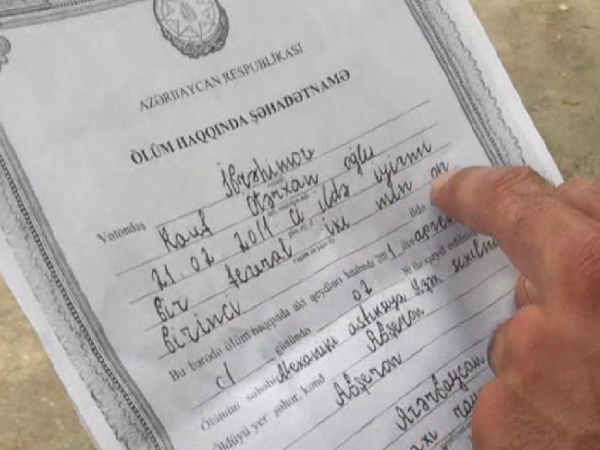 AZƏRBAYCAN RESPUBLİKASI
ÖLÜM HAQQINDA ŞƏHADƏTNAMƏ
İbrahimov
Vətəndaş Rauf oğlu
21.02.2011 ci ildə iyirmi
bir fevral iki min on
birinci ildə
Bu barədə ölüm haqqında akt qeydləri kitabında 201 1 -ilin aprel
günündə 02 № ilə qeyd edilmi
Ölümün səbəbi Mexaniki asfiksiya
Öldüyü yer: şəhər, kənd Abşeron
Abşeron
Azərbaycan